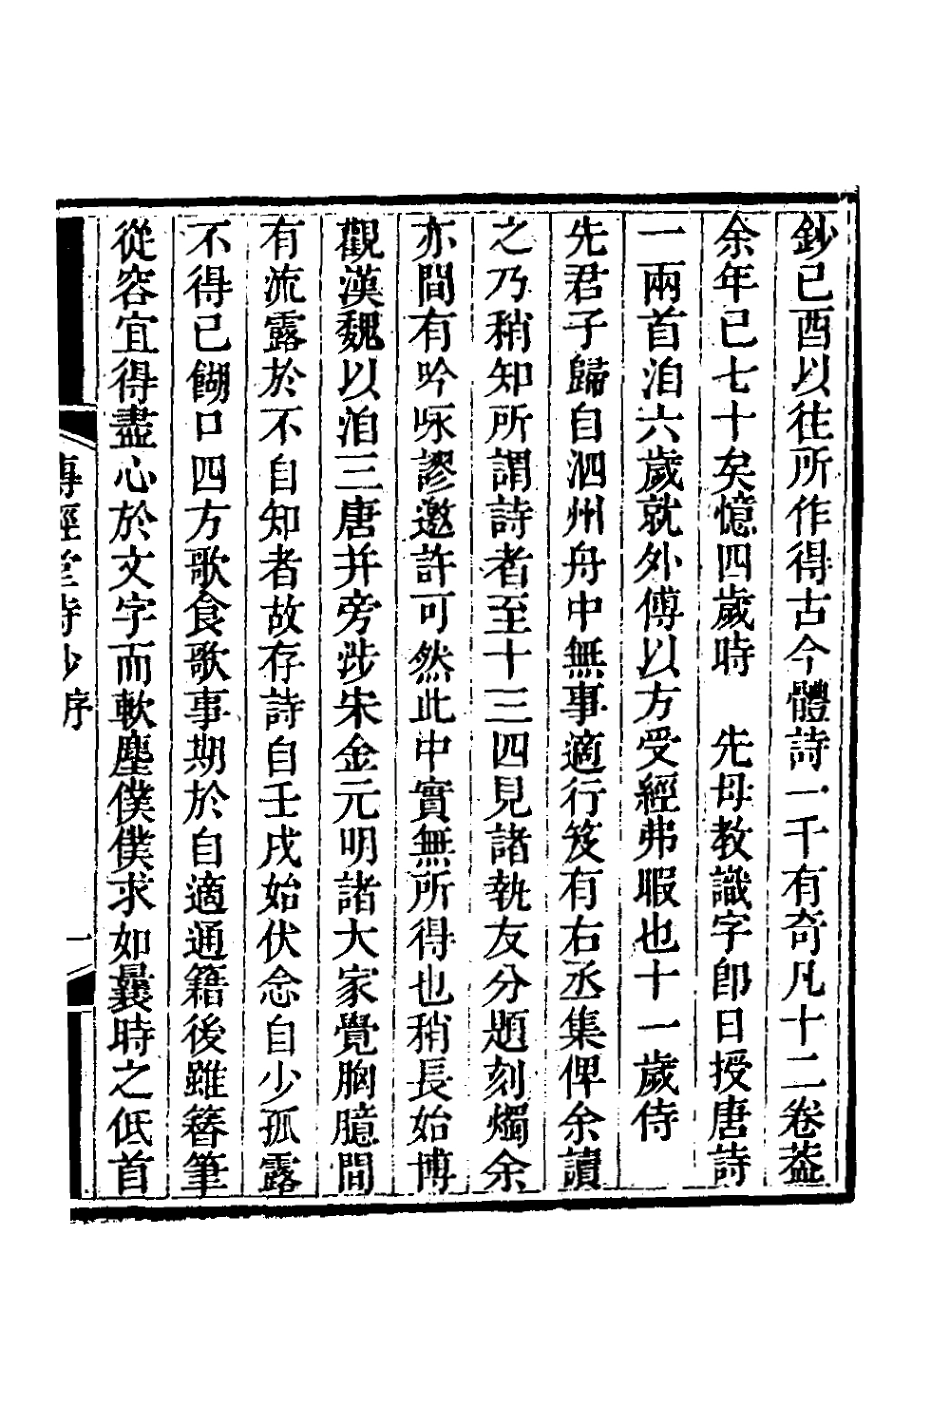 鈔己酉以往所作得古今體詩一千有奇凡十二卷葢
余年已七十矣憶四歲時　先母教識字卽日授唐詩
一兩首洎六歲就外傅以方受經弗暇也十一歲侍
先君子歸自泗州舟中無事適行笈有右丞集俾余讀
之乃稍知所謂詩者至十三四見諸執友分題刻燭余
亦間有吟咏謬邀許可然此中實無所得也稍長始博
觀漢魏以洎三唐并旁涉宋金元明諸大家覺胸臆間
有流露於不自知者故存詩自壬戌始伏念自少孤露
不得已餬口四方歌食歌事期於自適通籍後雖簪筆
從容宜得盡心於文字而軟塵僕僕求如曩時之低首
傳經堂詩鈔序
一